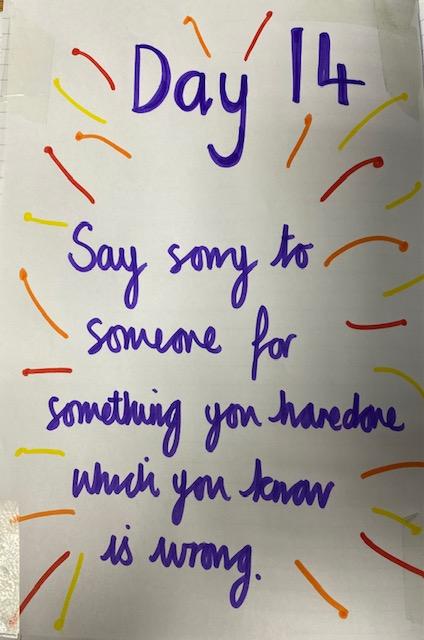 Day 14
Say sorry to
someone for
something you have done
which you know
is wrong.